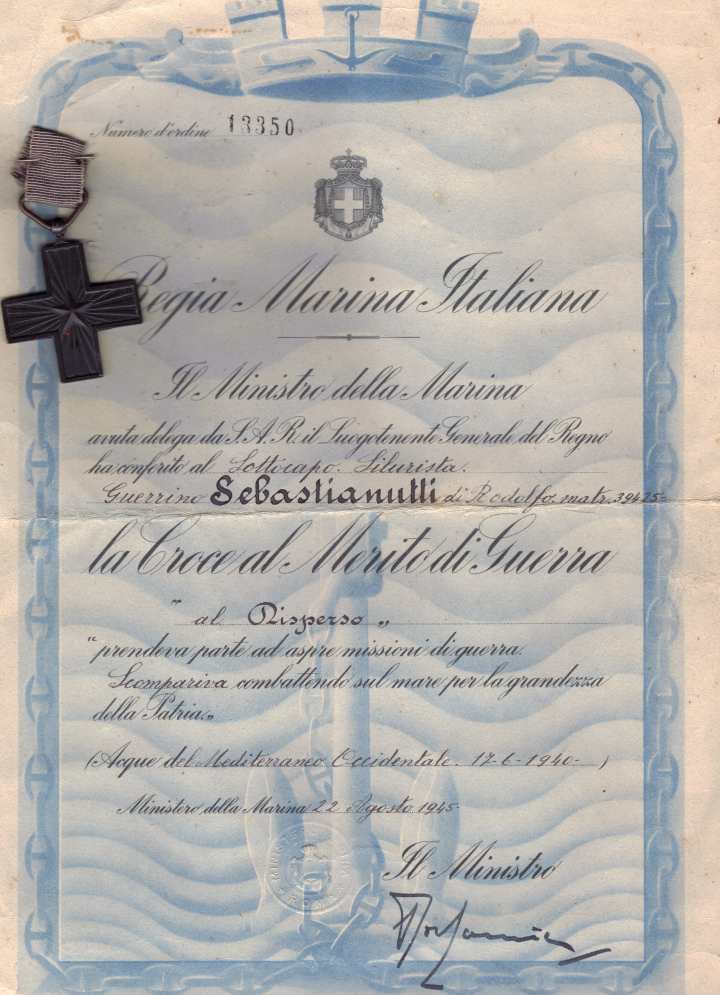 Numero d'ordine 13350
Regia Marina Italiana
Il Ministro della Marina
avuta delega da S.A.R. il Luogotenente Generale del Regno
ha conferito al Sottocapo. Silurista.
Guerrino Sebastianutti di Rodolfo. matr. 39425-
la Croce al Merito di Guerra
" al Disperso „
“prendeva parte ad aspre missioni di guerra.
Scompariva combattendo sul mare per la grandezza
della Patria.„
(Acque del Mediterraneo Occidentale. 17-6-1940- )
Ministero della Marina 22 Agosto 1945-
Il Ministro